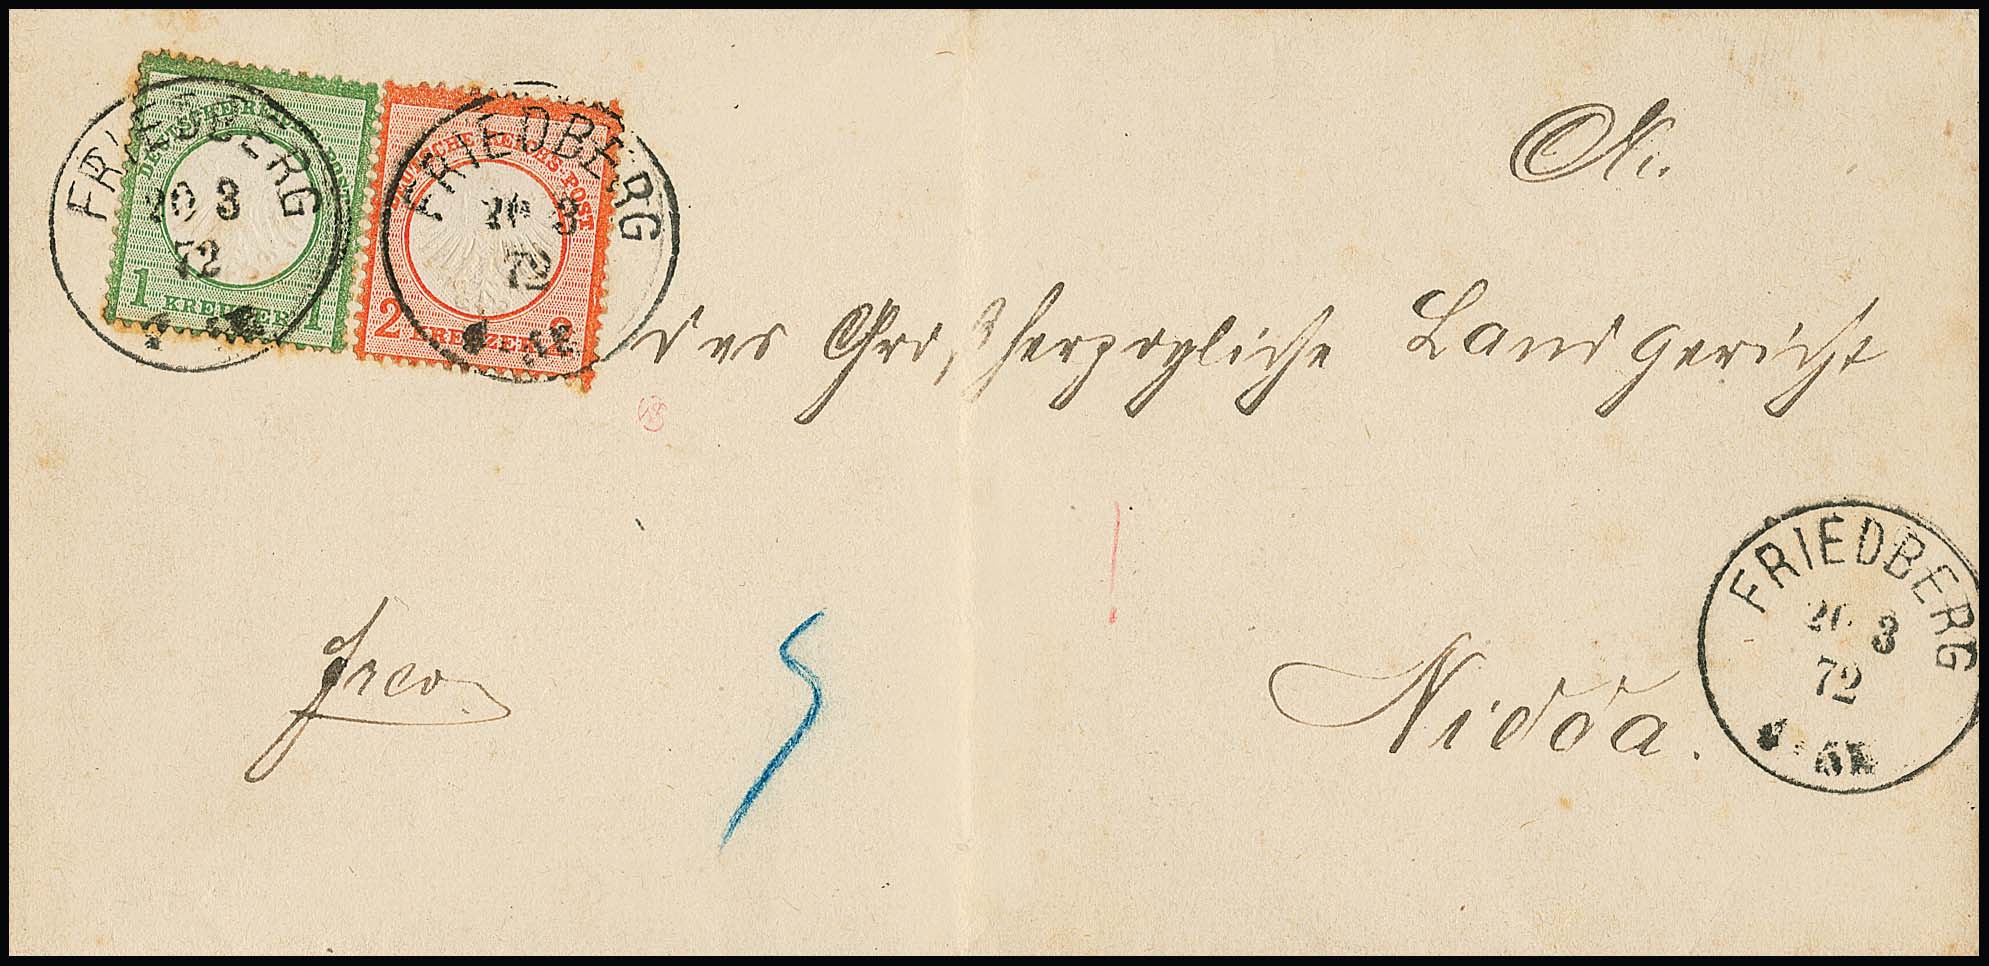 DEUTSCHE REICHS-POST
1 KREUZER 1
DEUTSCHE REICHS-POST
2 KREUZER 2
FRIEDBERG
20 3
72
FRIEDBERG
20 3
72
An
das Großherzogliche Landgericht
frco
Nidda.
FRIEDBERG
20 3
72